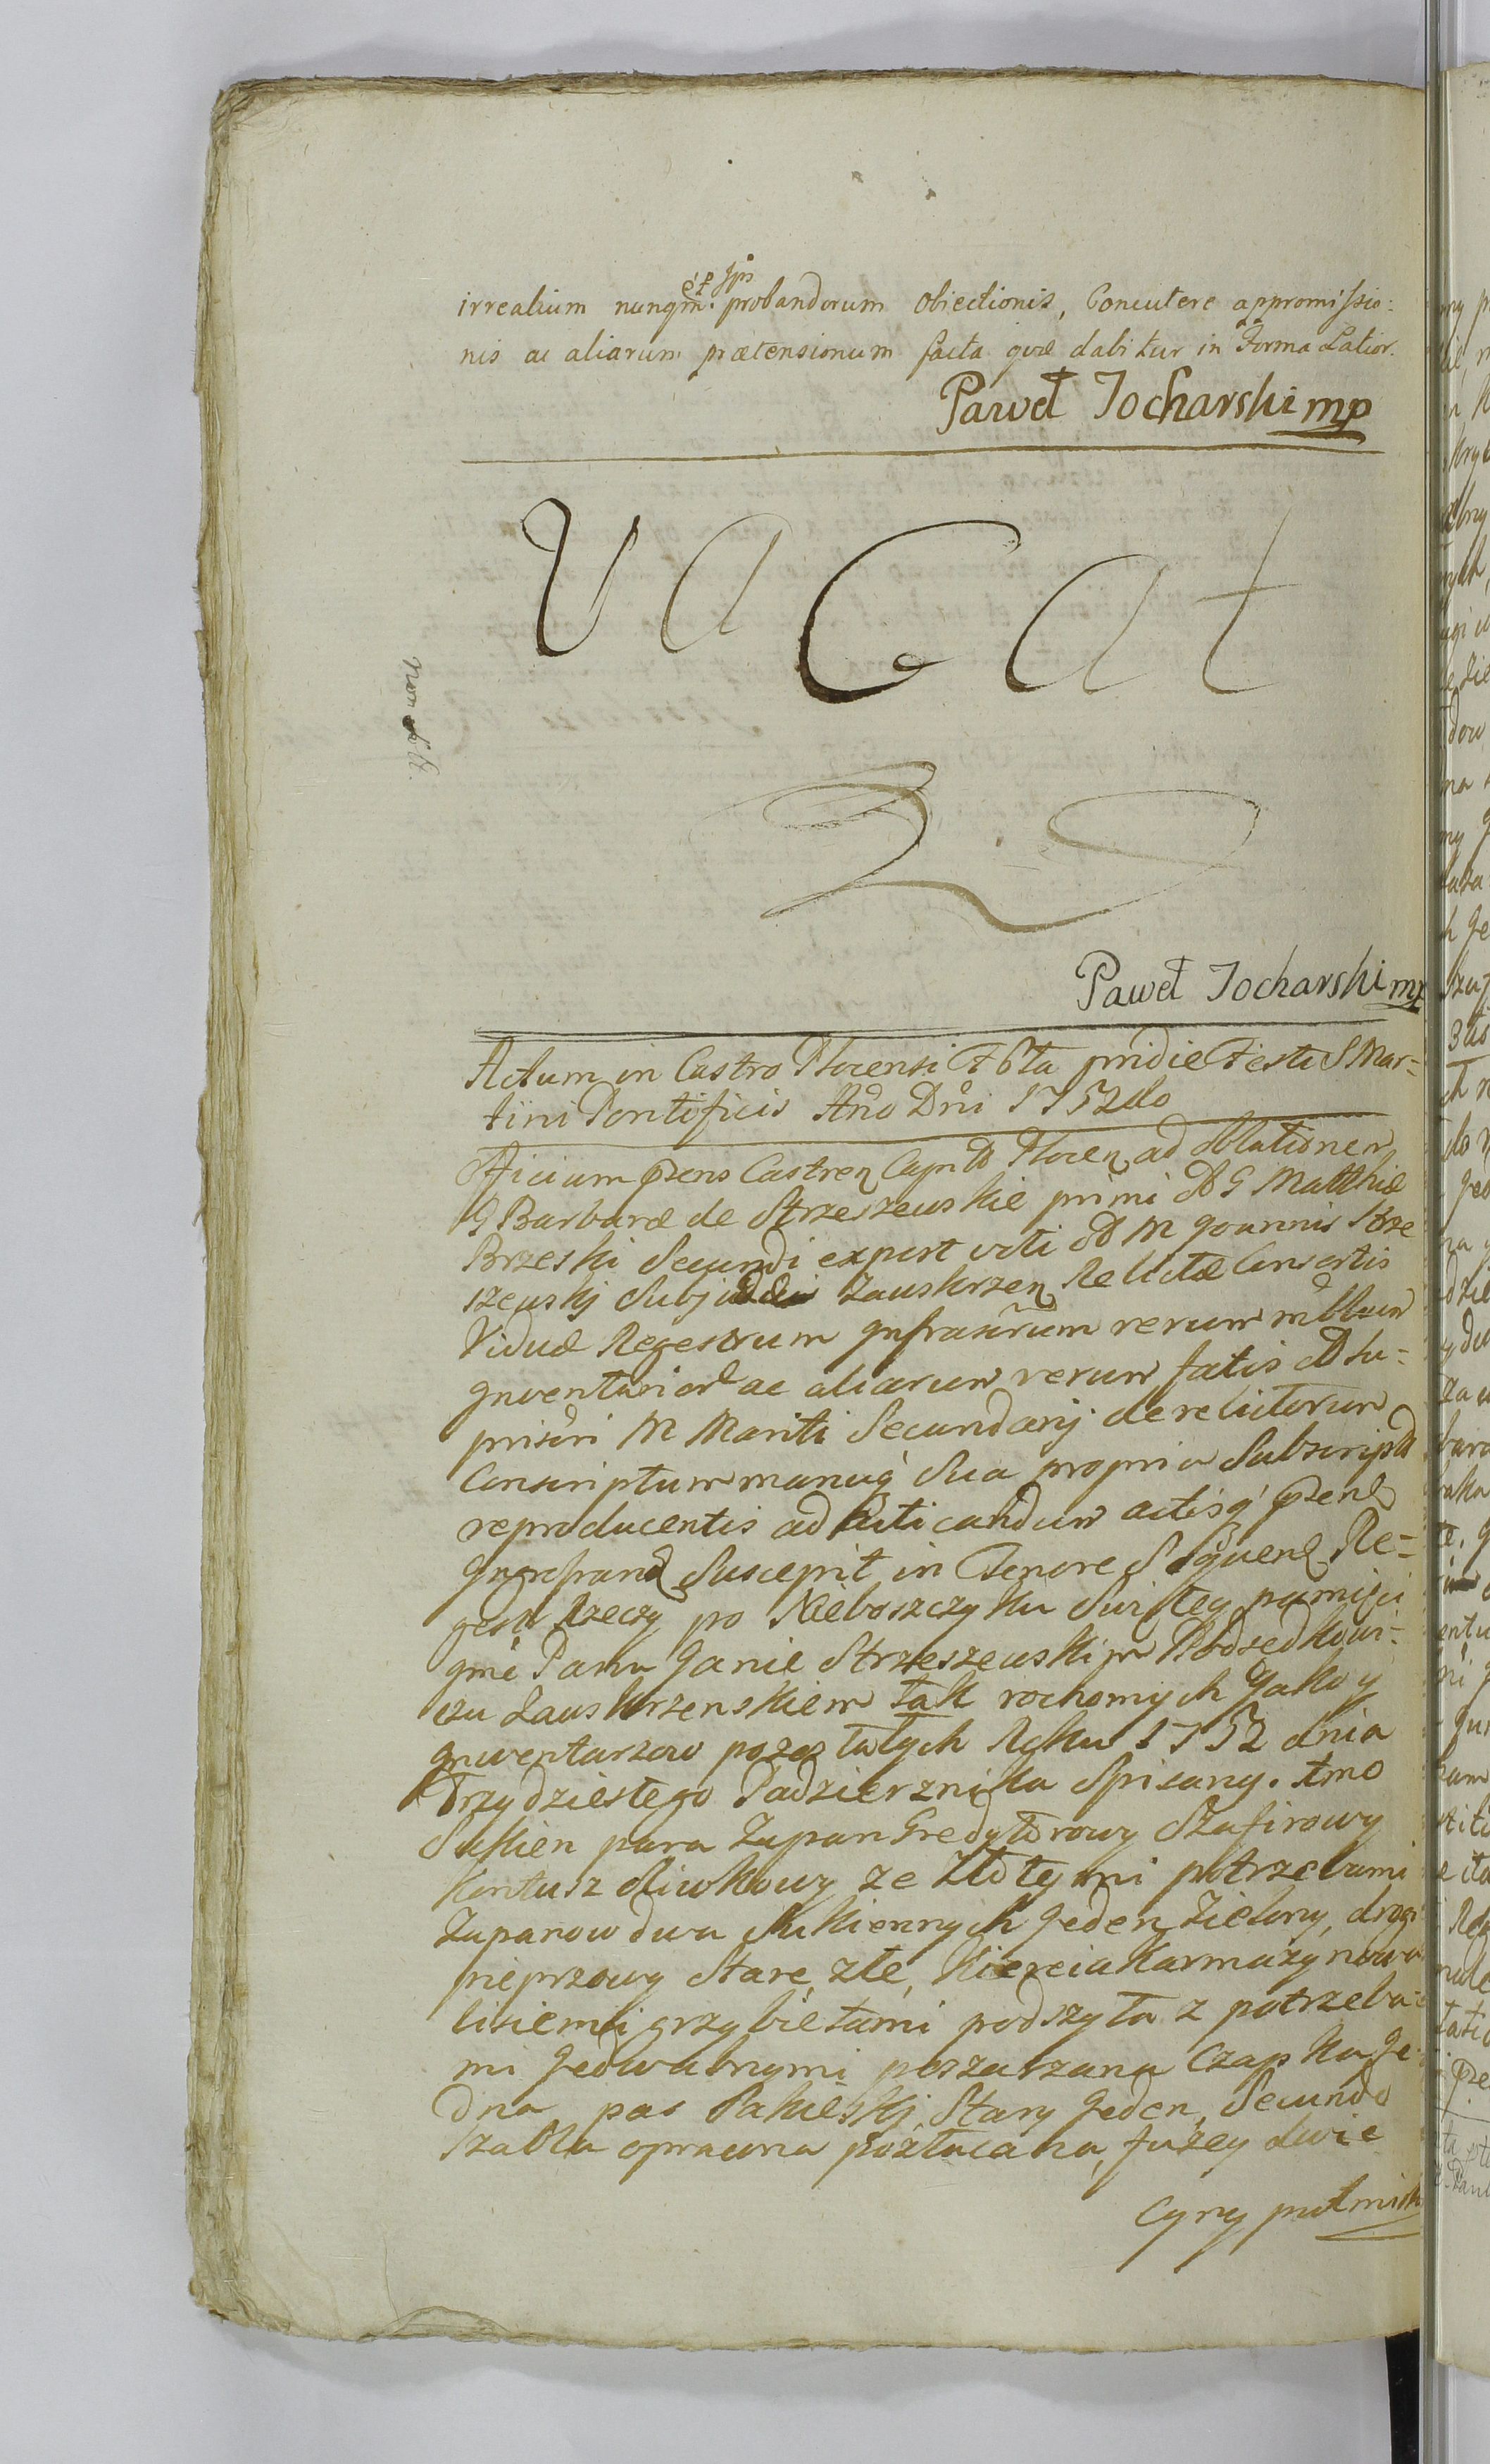 irrealium nunqm. probandorum obiectionis, Concutere appromissio:
nis ac aliarum prætensionum facta quæ dabitur in Forma Latior.
Paweł Jocharski mp
Vacat
Paweł Jocharski mp
Actum in Castro Plocensi fta pridie Festi S Mar=
tini Pontificis Ano Dni 1752do
Officium pzens Castren Capit Plocen ad oblationem
G Barbaræ de Strzeszewskie primi G Matthiæ
Brzeski Secundi expost voti M Joannis Strze
szewskj Subjudci Zawskrzen Relictæ Consortis
Viduæ Regestrum Infrascrum rerum mbbium
Inventarior ac aliarum rerum fatis
M Mariti Secundarij derelictorum
Conscriptum manuq Sua propria Subscript
reproducentis ad acticandum actisq pzent
Suscepit in Tenore Sequent Re=
gestr Rzeczy po Nieboszczyku Swiętey pamięci
Jme Panu Janie Strzeszewskim Podsędkowi=
czu Zawskrzenskiem tak rochomych Jako y
Inwentarzow pozoztałych Roku 1752 dnia
Trzydziestego Padziernika Spisany. 1mo
Sukien para Zupan Gredytorowy Szafirowy
Kontusz sliwkowy ze Złotymi potrzebami
Zupanow dwa Sukiennych Jeden Zielony, drogi
pieprzowy Stare, złe, Kiereia Karmazynowa
lisiemi grzybietami podszyta z potrzeba=
mi Jedwabnymi poszarzana Czapka Je=
dna pas Pakieskj Stary Jeden, Secundo
Szabla oprawna pozłacana, fuzey dwie
Cyny putmisk